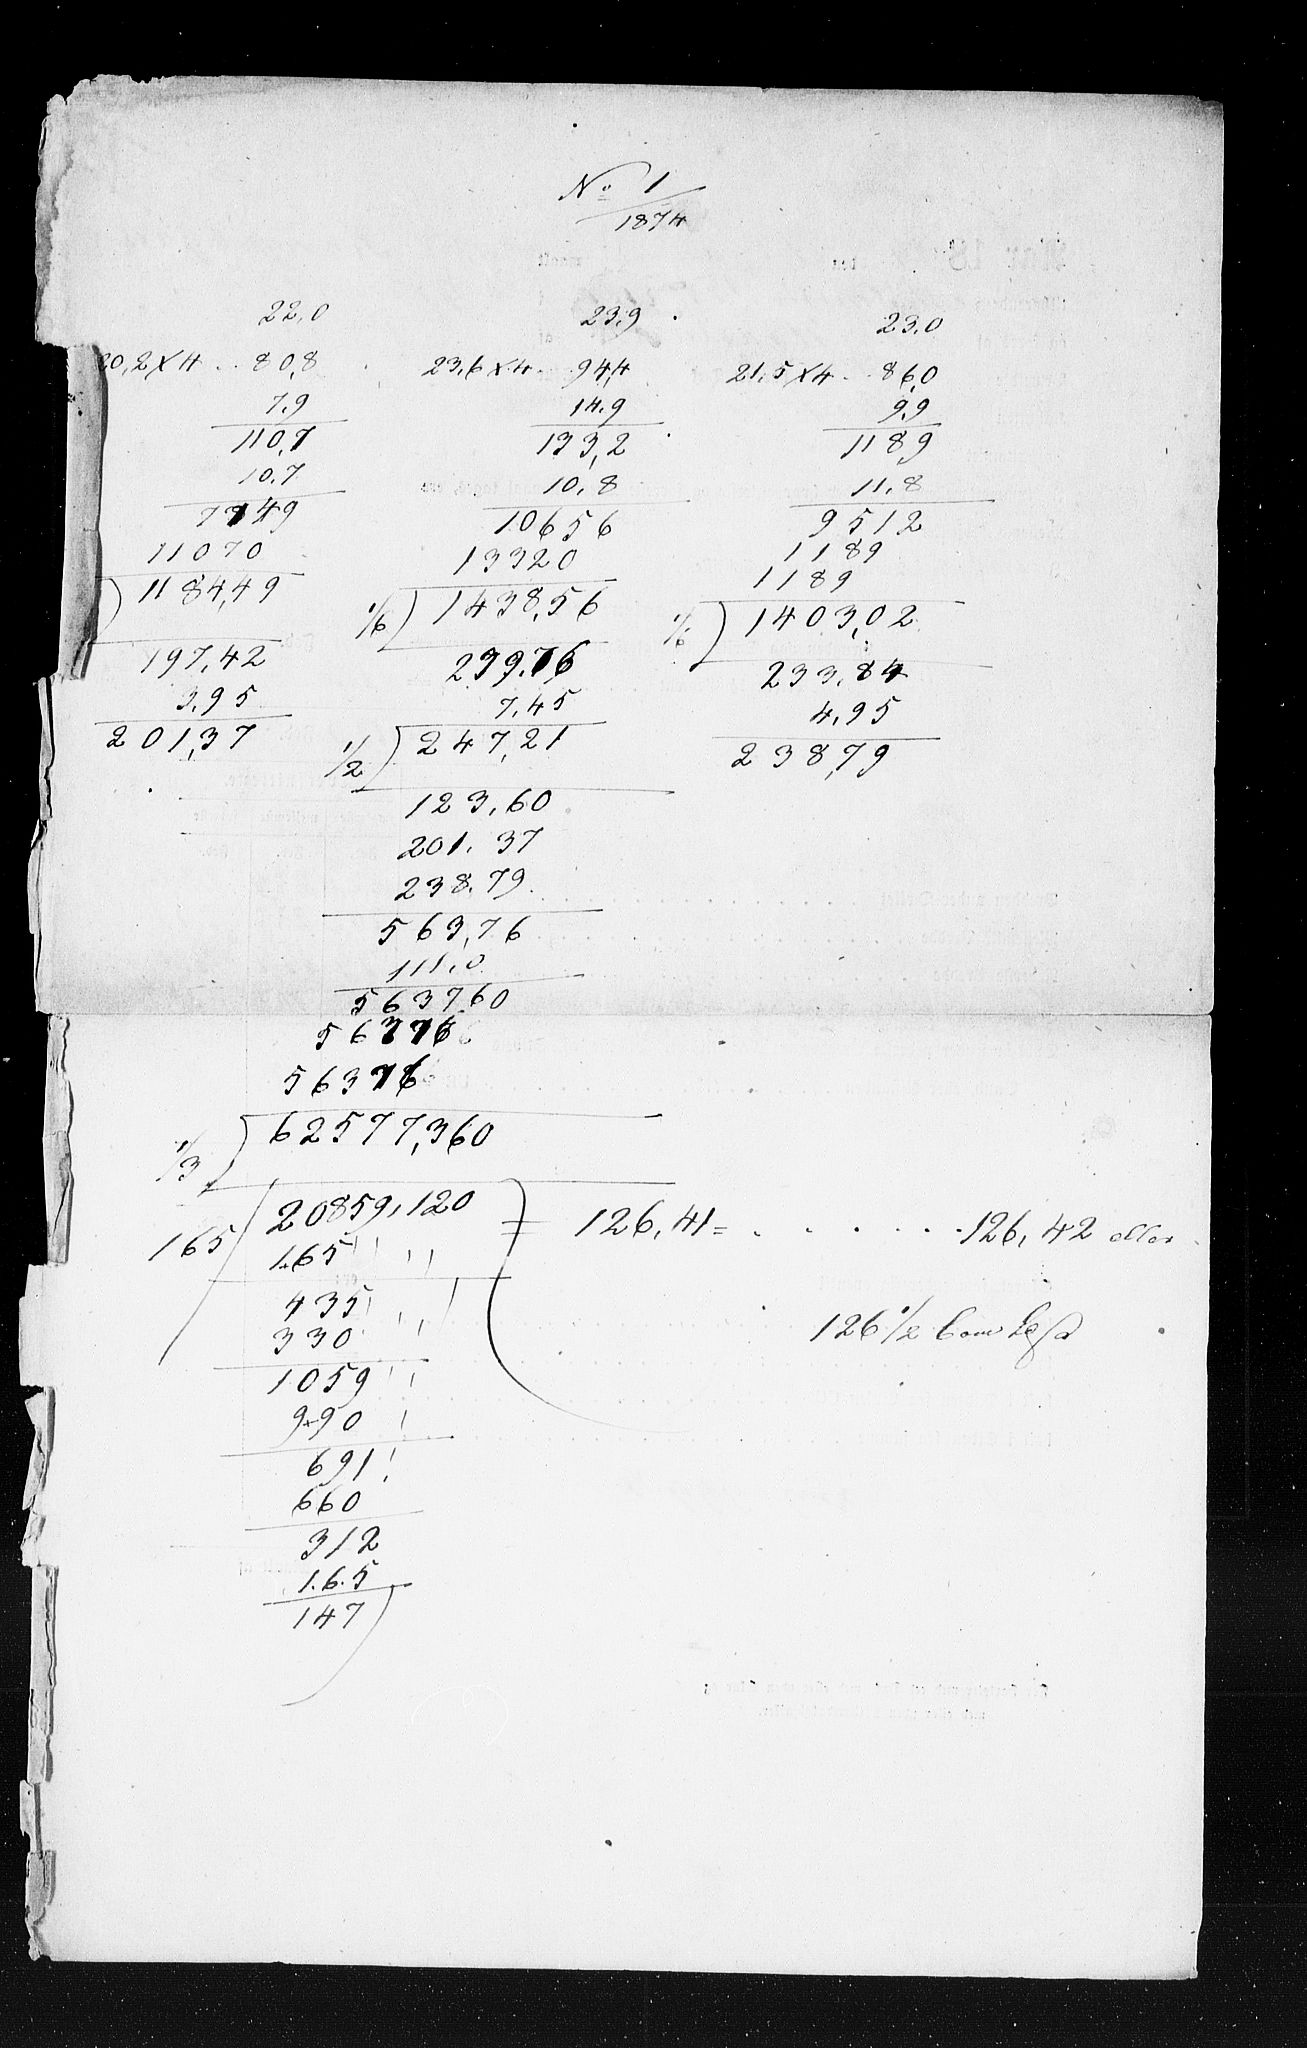 No 1
1874
22,0
20,2 X 4 .. 80,8
7,9
110,7
10,7
7749
11070
) 1184,49
197,42
3,95
201,37
23,9
23,6 X 4 .. 94,4
14,9
133,2
10,8
10656
13320
1/6) 1438,56
239,76
7,45
1/2) 247,21
123,60
201,37
238,79
563,76
111,0
563760
56376
56376
1/3) 62577,360
165/ 20859,120 = 126,41 = . . . . . . 126,42 eller
165
435
330
1059
990
691
660
312
165
147
23,0
21,5 X 4 .. 86,0
9,9
118,9
11,8
9512
1189
1189
1/6) 1403,02
233,84
4,95
238,79
126 1/2 Com Lest